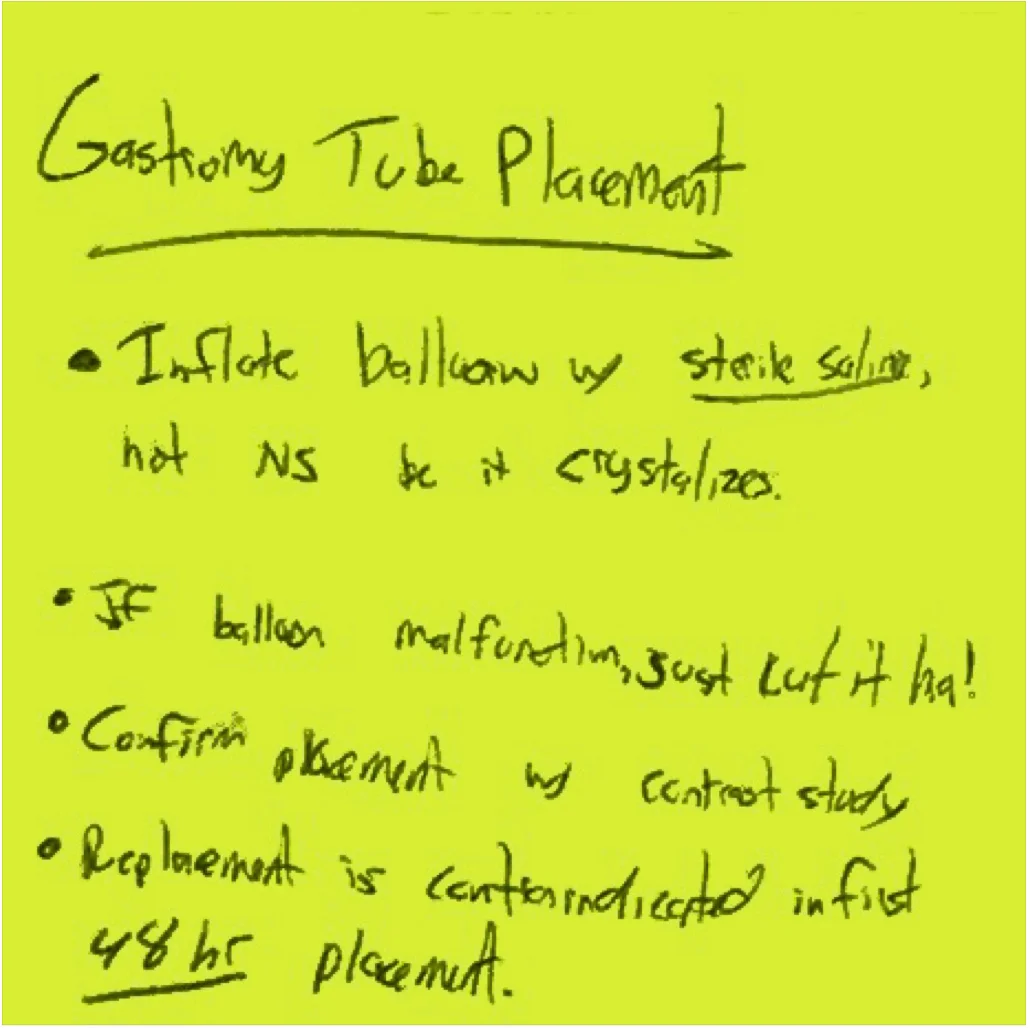 Gastromy Tube Placement
• Inflate balloon w/ sterile saline,
not NS bc it crystalizes.
• If balloon malfunction, just cut it ha!
• Confirm placement w/ contrast study
• Replacement is contraindicated in first
48 hr placement.